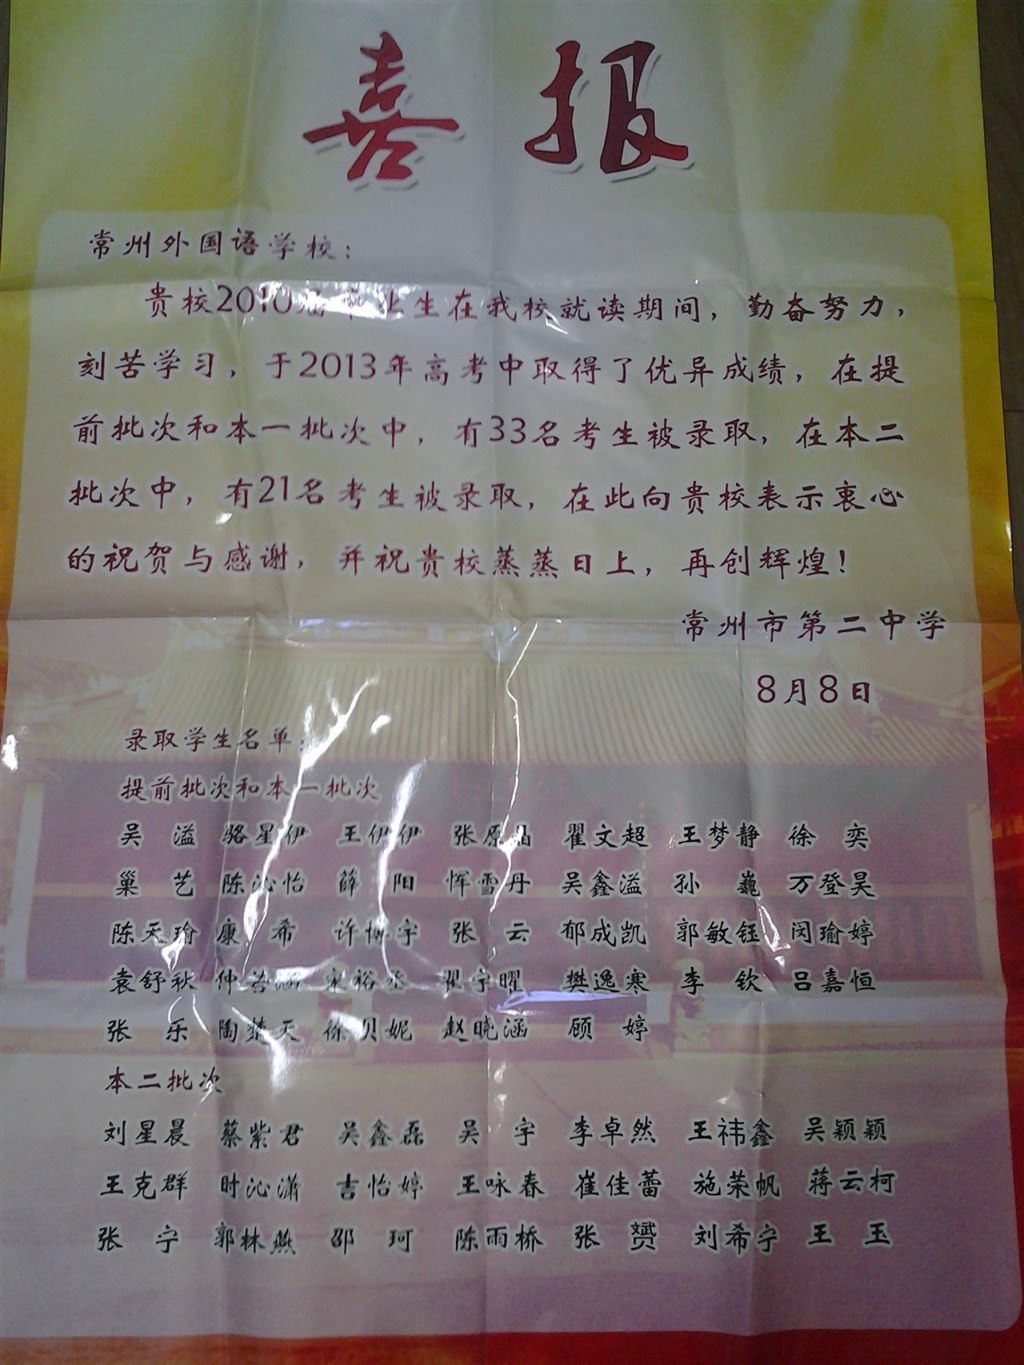 喜报
常州外国语学校：
贵校2010届毕业生在我校就读期间，勤奋努力，
刻苦学习，于2013年高考中取得了优异成绩，在提
前批次和本一批次中，有33名考生被录取，在本二
批次中，有21名考生被录取，在此向贵校表示衷心
的祝贺与感谢，并祝贵校蒸蒸日上，再创辉煌！
常州市第二中学
8月8日
录取学生名单：
提前批次和本一批次
吴溢 骆星伊 王伊伊 张原晶 翟文超 王梦静 徐奕
巢艺 陈沁怡 薛阳 恽雪丹 吴鑫溢 孙巍 万登昊
陈天瑜 康希 许博宇 张云 郁成凯 郭敏钰 闵瑜婷
袁舒秋 宋裕丞 翟宇曜 樊逸寒 李钦 吕嘉恒
张乐 陶楚天 徐贝妮 赵晓涵 顾婷
本二批次
刘星晨 蔡紫君 吴鑫磊 吴宇 李卓然 王祎鑫 吴颖颖
王克群 时沁潇 吉怡婷 王咏春 崔佳蕾 施荣帆 蒋云柯
张宁 郭林燕 邵珂 陈雨桥 张赟 刘希宁 王玉